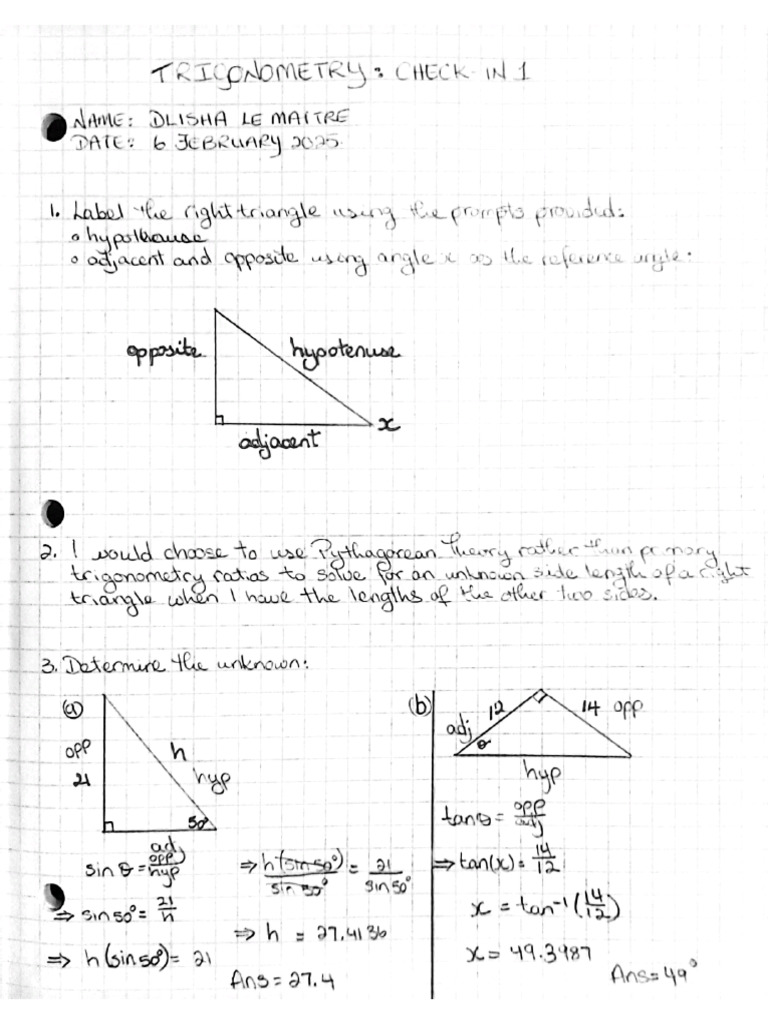 TRIGONOMETRY: CHECK-IN 1
NAME: DLISHA LE MAITRE
DATE: 6 FEBRUARY 2025
1. Label the right triangle using the prompts provided:
o hypotheuse
o adjacent and opposite using angle x as the reference angle:
opposite
hypotenuse
x
adjacent
2. I would choose to use Pythagorean Theory rather than primary
trigonometry ratios to solve for an unknown side length of a right
triangle when I have the lengths of the other two sides.
3. Determine the unknown:
(a)
opp
21
h
hyp
50°
adj
sin θ = opp/hyp
⇒ sin 50° = 21/h
⇒ h(sin 50°) = 21
⇒ h(sin 50°)/sin 50° = 21/sin 50°
⇒ h = 27.4136
Ans = 27.4
(b)
12
14 opp
adj
θ
hyp
tan θ = opp/adj
⇒ tan(x) = 14/12
x = tan⁻¹(14/12)
x = 49.3987
Ans = 49°